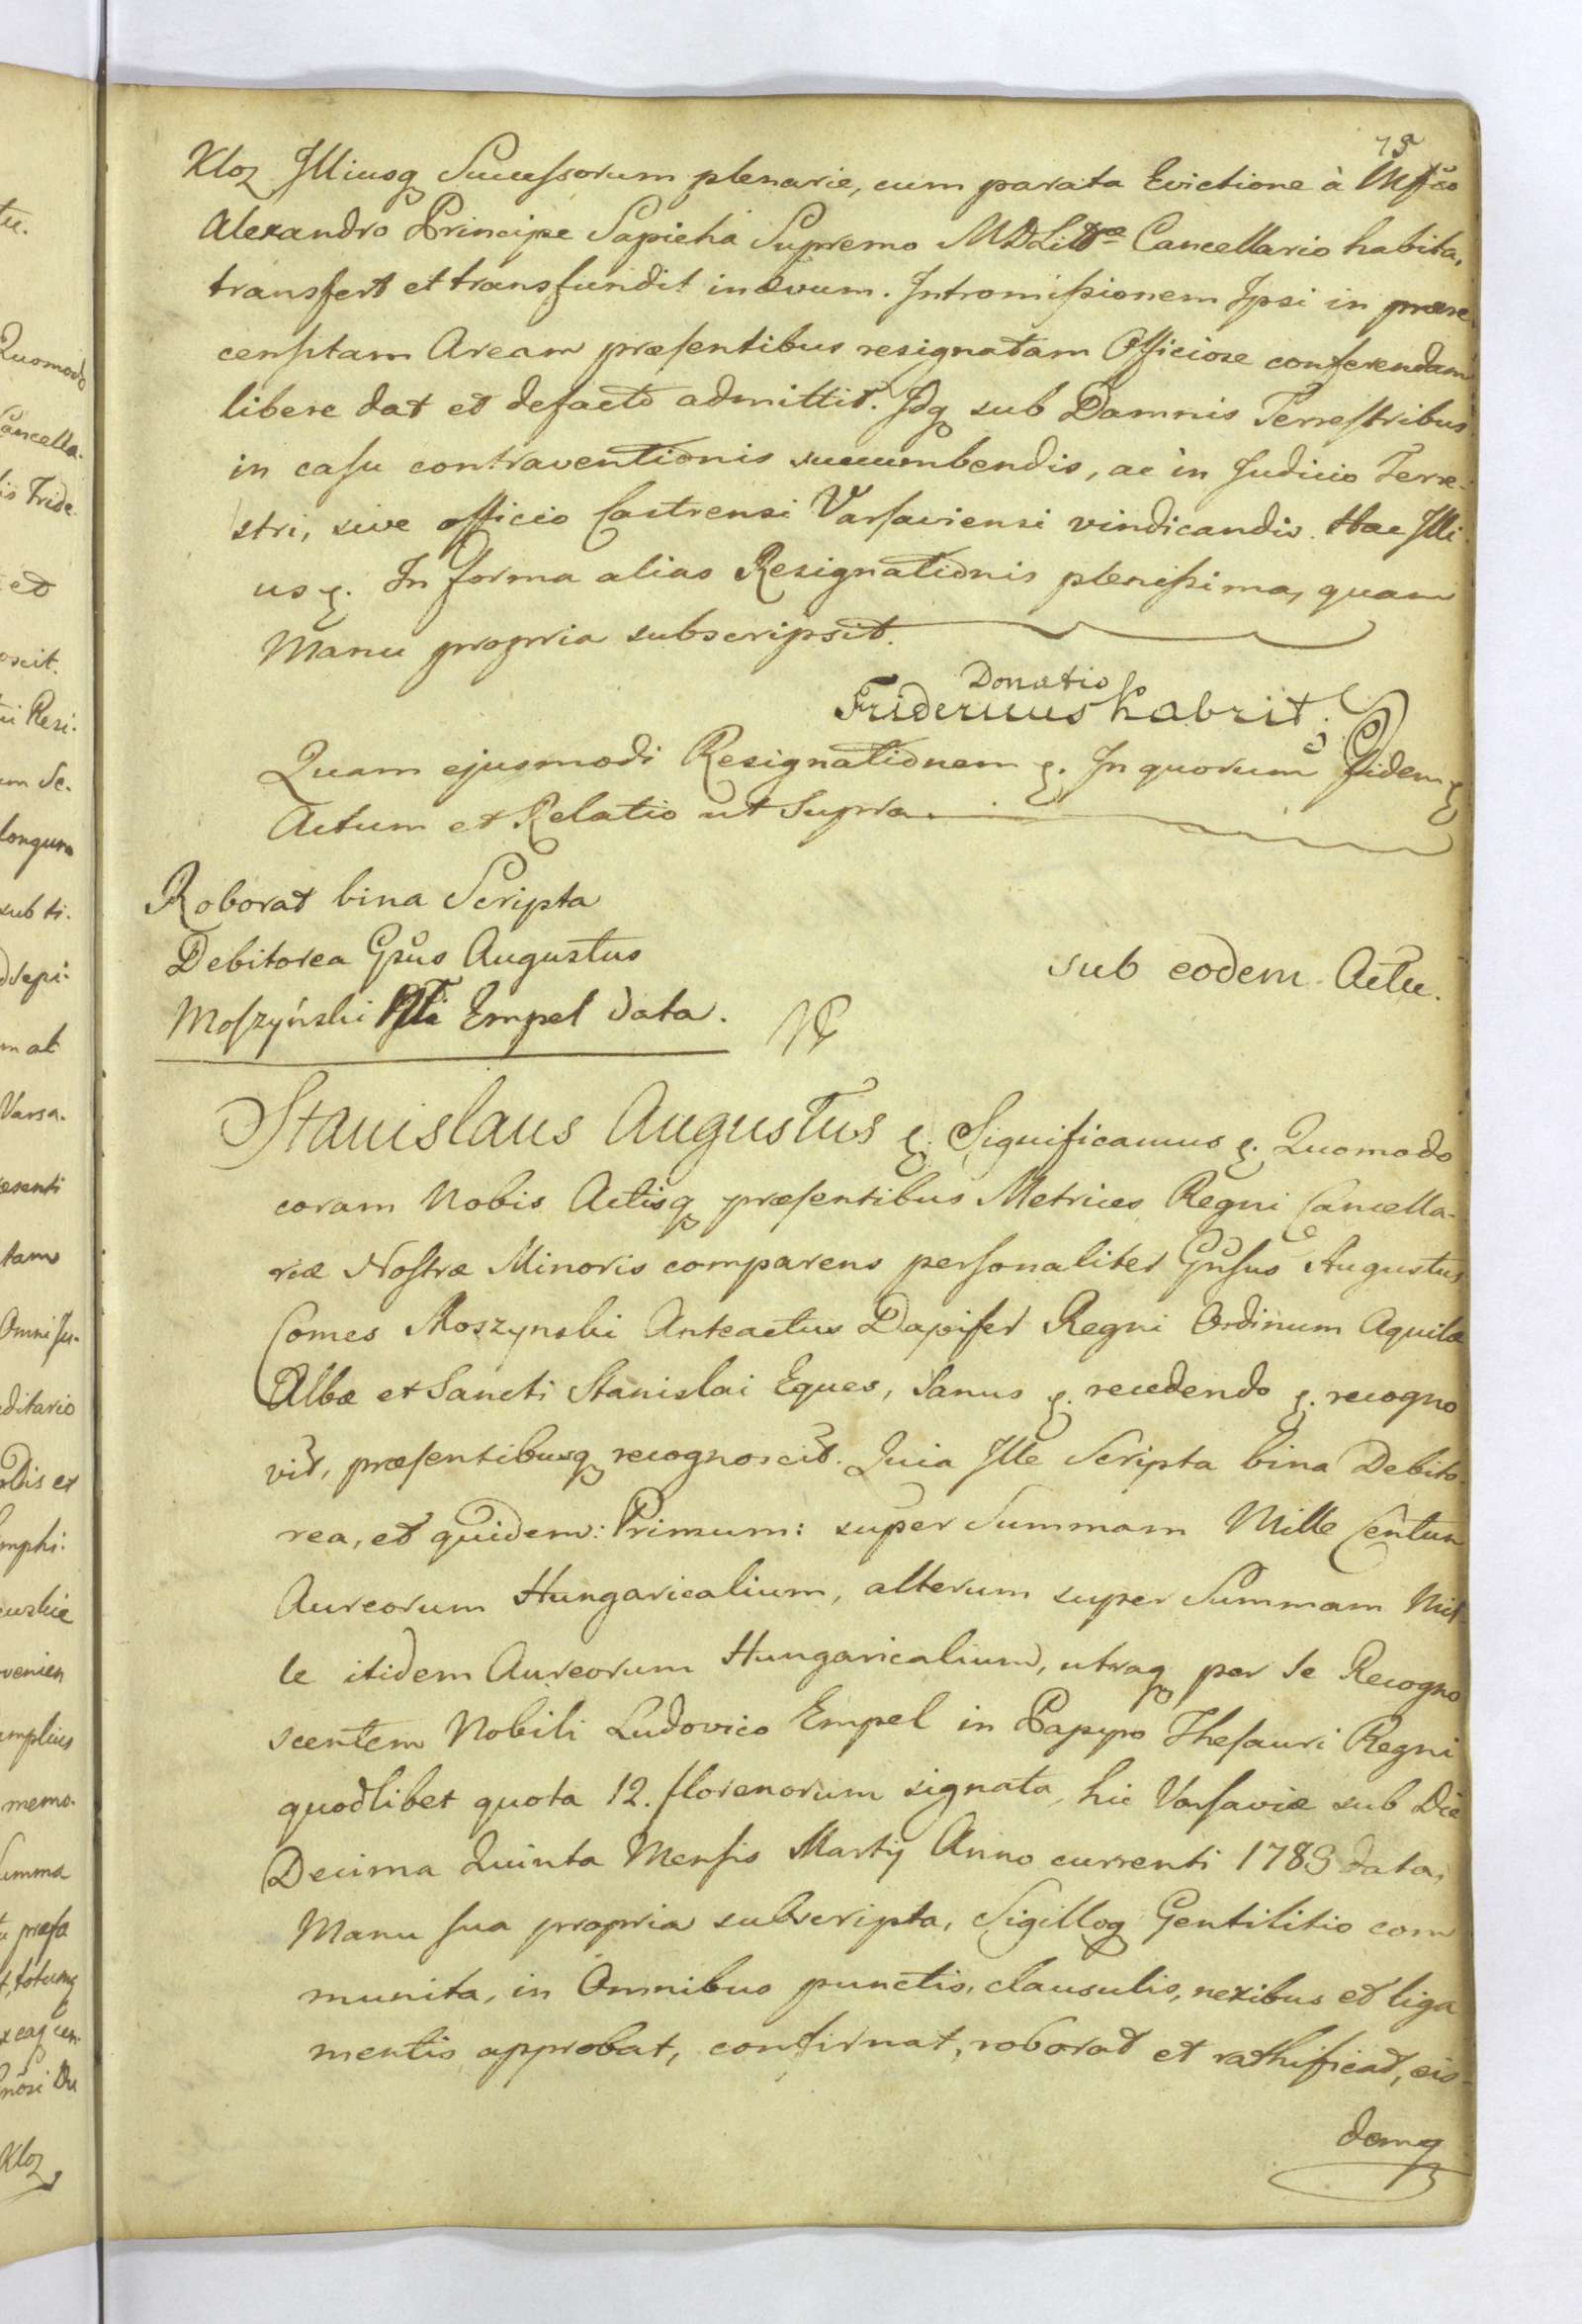 75
Kloz Illiusq Successorum plenarie, cum parata Evictione à Mfco
Alexandro Principe Sapieha Supremo MDLittæ Cancellario habita,
transfert et transfundit in ævum. Intromissionem Ipsi in prære
censitam Aream præsentibus resignatam Officiose conferendam
libere dat et defacto admittit. Idq sub Damnis Terrestribus
in casu contraventionis succumbendis, ac in Judicio Terre-
stri, sive officio Castrensi Varsaviensi vindicandis. Hac Illi
us etc. In forma alias Resignationis plenissima, quam
Manu propria subscripsit.
Donatio
Fridericus Kabrit.
Quam ejusmodi Resignationem etc. In quorum Fidem etc
Actum et Relatio ut Supra.
Roborat bina Scripta
Debitorea Gsus Augustus
Moszyński Nli Empel data.
sub eodem Actu.
Stanislaus Augustus etc. Significamus etc. Quomodo
coram Nobis Actisq præsentibus Metrices Regni Cancella-
riæ Nostræ Minoris comparens personaliter Gnsus Augustus
Comes Moszynski Anteactus Dapifer Regni Ordinum Aquilæ
Albæ et Sancti Stanislai Eques, Sanus etc. recedendo etc. recogno
vit, præsentibusq recognoscit. Quia Ille Scripta bina Debito-
rea, et quidem: Primum: super Summam Mille Centum
Aureorum Hungaricalium, alterum super Summam Mil
le itidem Aureorum Hungaricalium, utraq per se Recogno
scentem Nobili Ludovico Empel in Papyro Thesauri Regni
quodlibet quota 12. florenorum signata, hic Varsaviæ sub Die
Decima Quinta Mensis Martij Anno currenti 1783 data,
Manu sua propria subscripta, Sigilloq Gentilitio com
munita, in Omnibus punctis, clausulis, nexibus et liga
mentis approbat, confirmat, roborat et rathificat, eis-
demq